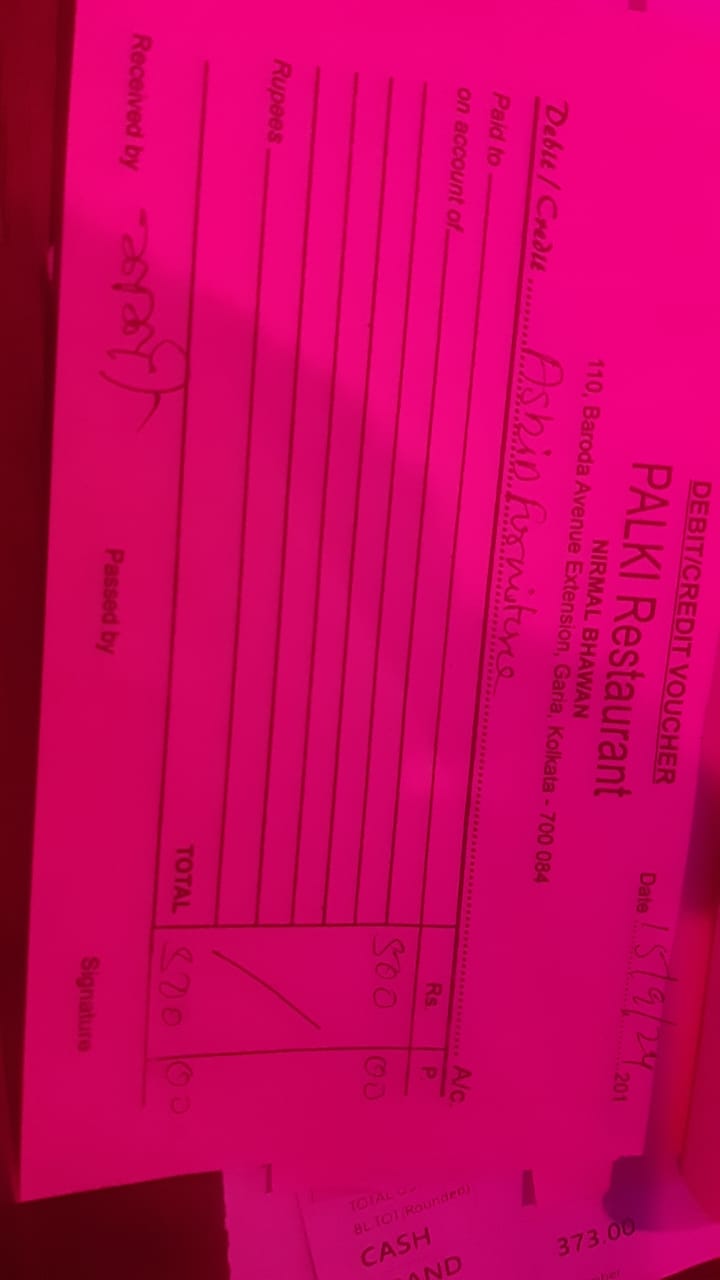 DEBIT/CREDIT VOUCHER
PALKI Restaurant
NIRMAL BHAWAN
110, Baroda Avenue Extension, Garia, Kolkata - 700 084
Date 15/9/24 201
Debit / Credit Ashin furniture A/c.
Paid to
on account of
Rs. P
500 00
Rupees
TOTAL 500 00
Received by
Passed by
Signature
TOTAL
BL TOT(Rounded)
CASH 373.00
AND